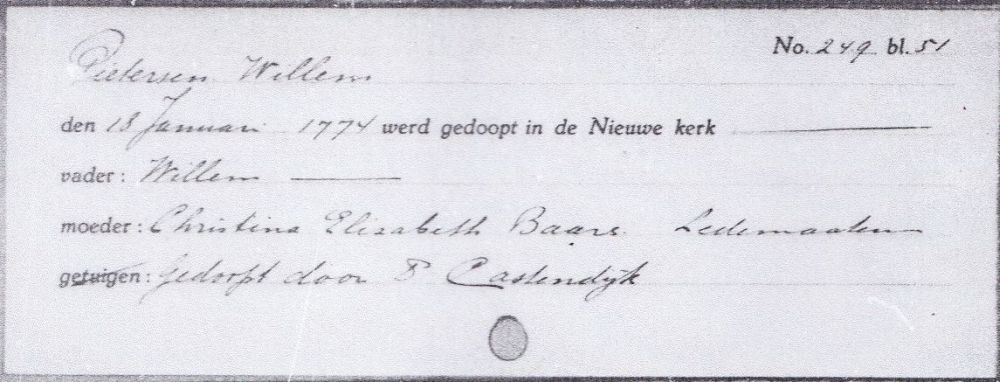 No. 249 bl. 51
Pietersen Willem
den 18 Januari 1774 werd gedoopt in de Nieuwe kerk
vader: Willem
moeder: Christina Elisabeth Baars. Ledematen
getuigen: Gedoopt door P Castendijk